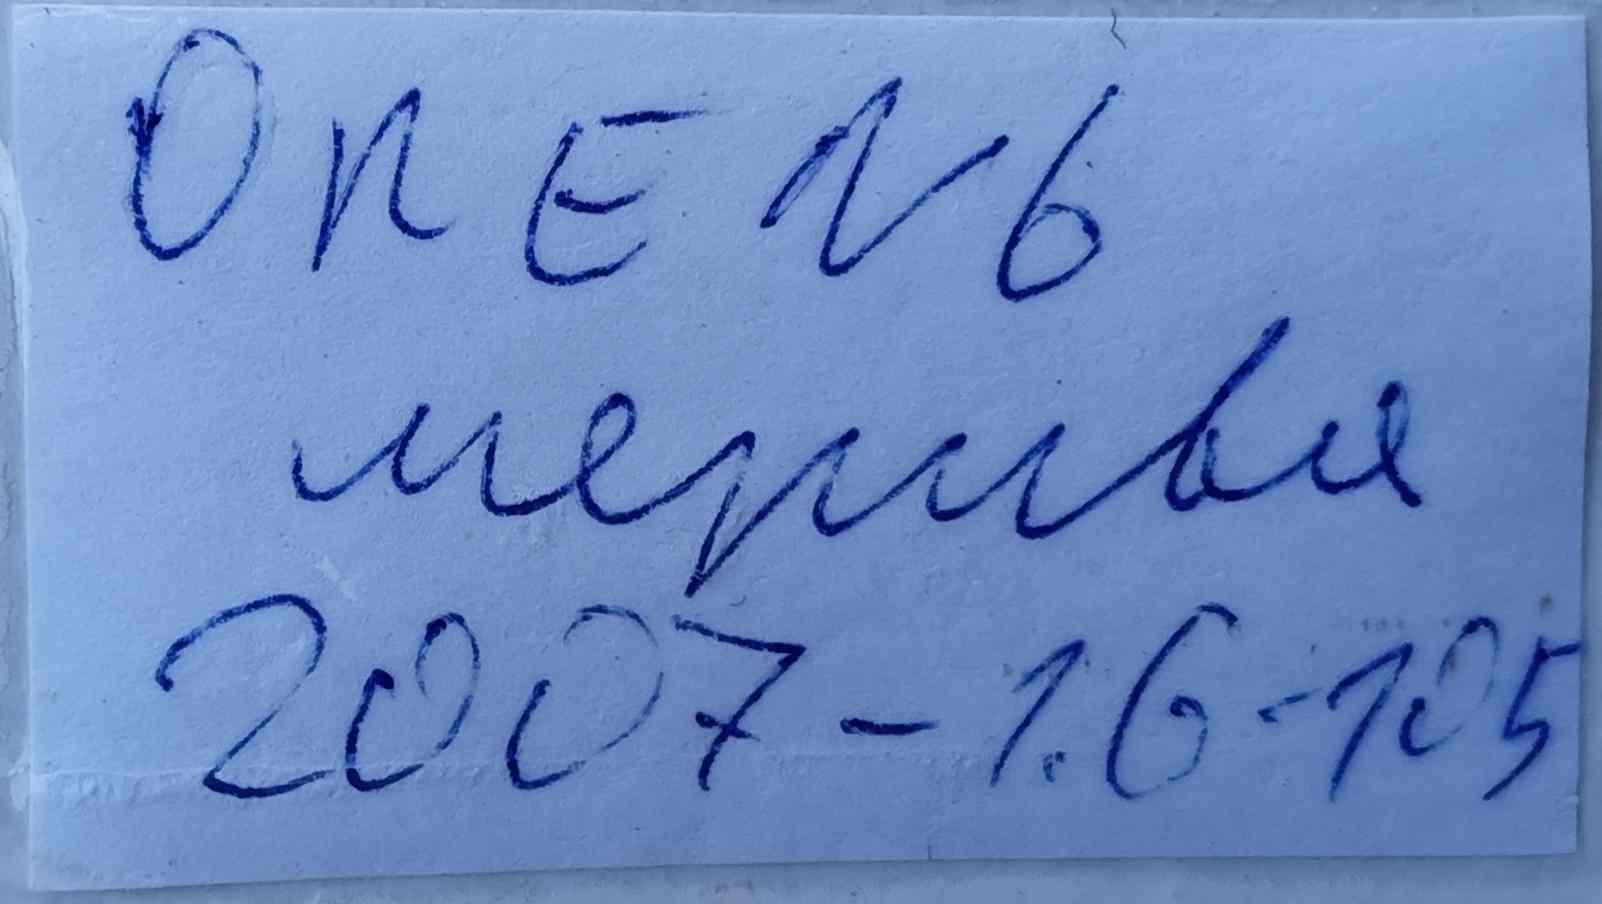 ОПЕЛЬ
мерива
2007 - 1.6 - 105